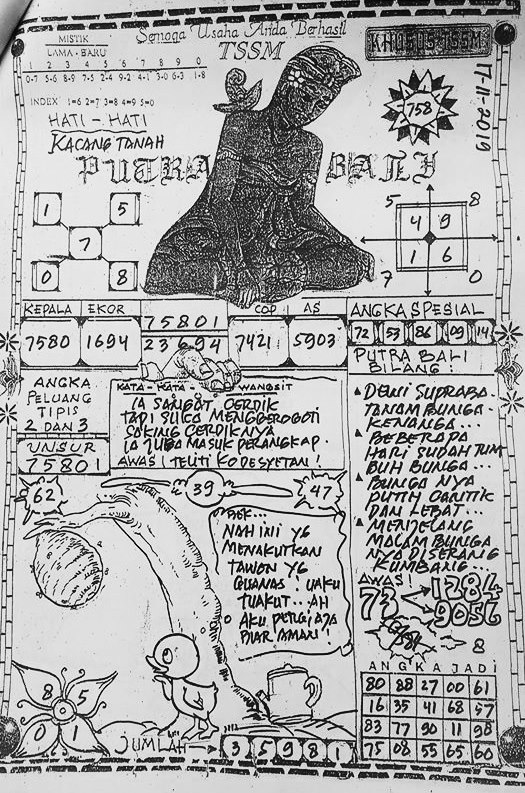 Semoga Usaha Anda Berhasil
TSSM
KHUSUS TSSM
MISTIK
LAMA - BARU
1 2 3 4 5 6 7 8 9 0
0-7 5-6 8-9 7-5 2-4 9-2 4-1 3-0 6-3 1-8
INDEX 1=6 2=7 3=8 4=9 5=0
HATI - HATI
KACANG TANAH
758
17-11-2019
PUTRA BALI
1 5
7
0 8
5 8
4 9
1 6
7 0
KEPALA EKOR
7580 1694
75801
23694
COP AS
7421 5903
ANGKA SPESIAL
72 53 86 09 14
ANGKA
PELUANG
TIPIS
2 DAN 3
UNSUR
75801
KATA - KATA WANGSIT
IA SANGAT CERDIK
TAPI SUKA MENGGEROGOTI
SAKING CERDIKNYA
IA JUGA MASUK PERANGKAP.
AWAS! TELITI KODESYETAN!
PUTRA BALI
BILANG:
DEWI SUPRABA.
TANAM BUNGA.
KENANGA...
BEBERAPA
HARI SUDAH TUM
BUH BUNGA...
BUNGA NYA
PUTIH CANTIK
DAN LEBAT...
MENJELANG
MALAM BUNGA
NYA DISERANG
KUMBANG...
AWAS!
73
1284
9056
8
62
39
47
NAH INI YG
MENAKUTKAN
TAWON YG
GUANAS! UAKU
TUAKUT...AH
AKU PERGI AJA
BIAR AMAN!
8 5
0 1
JUMLAH
3 5 9 8 1
ANGKA JADI
80 88 27 00 61
16 35 41 68 57
83 77 90 11 98
75 08 55 65 60